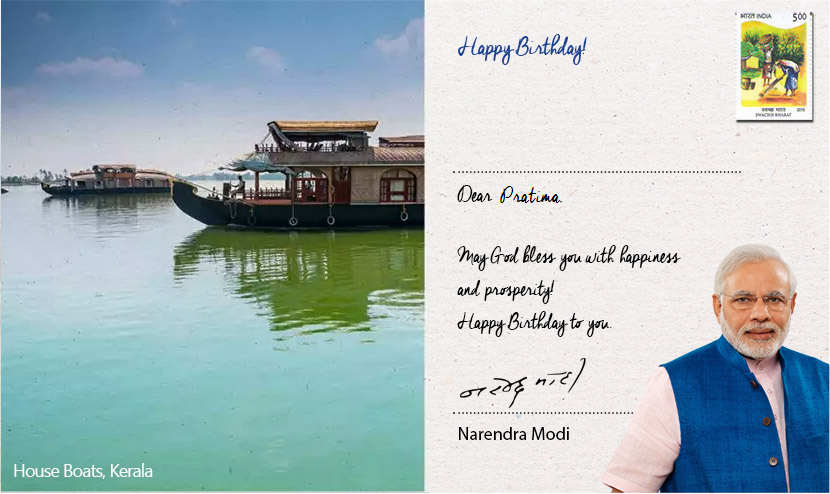 Happy Birthday!
भारत INDIA 500
स्वच्छ भारत 2015
SWACHH BHARAT
Dear Pratima.
May God bless you with happiness
and prosperity!
Happy Birthday to you.
नरेन्द्र मोदी
Narendra Modi
House Boats, Kerala